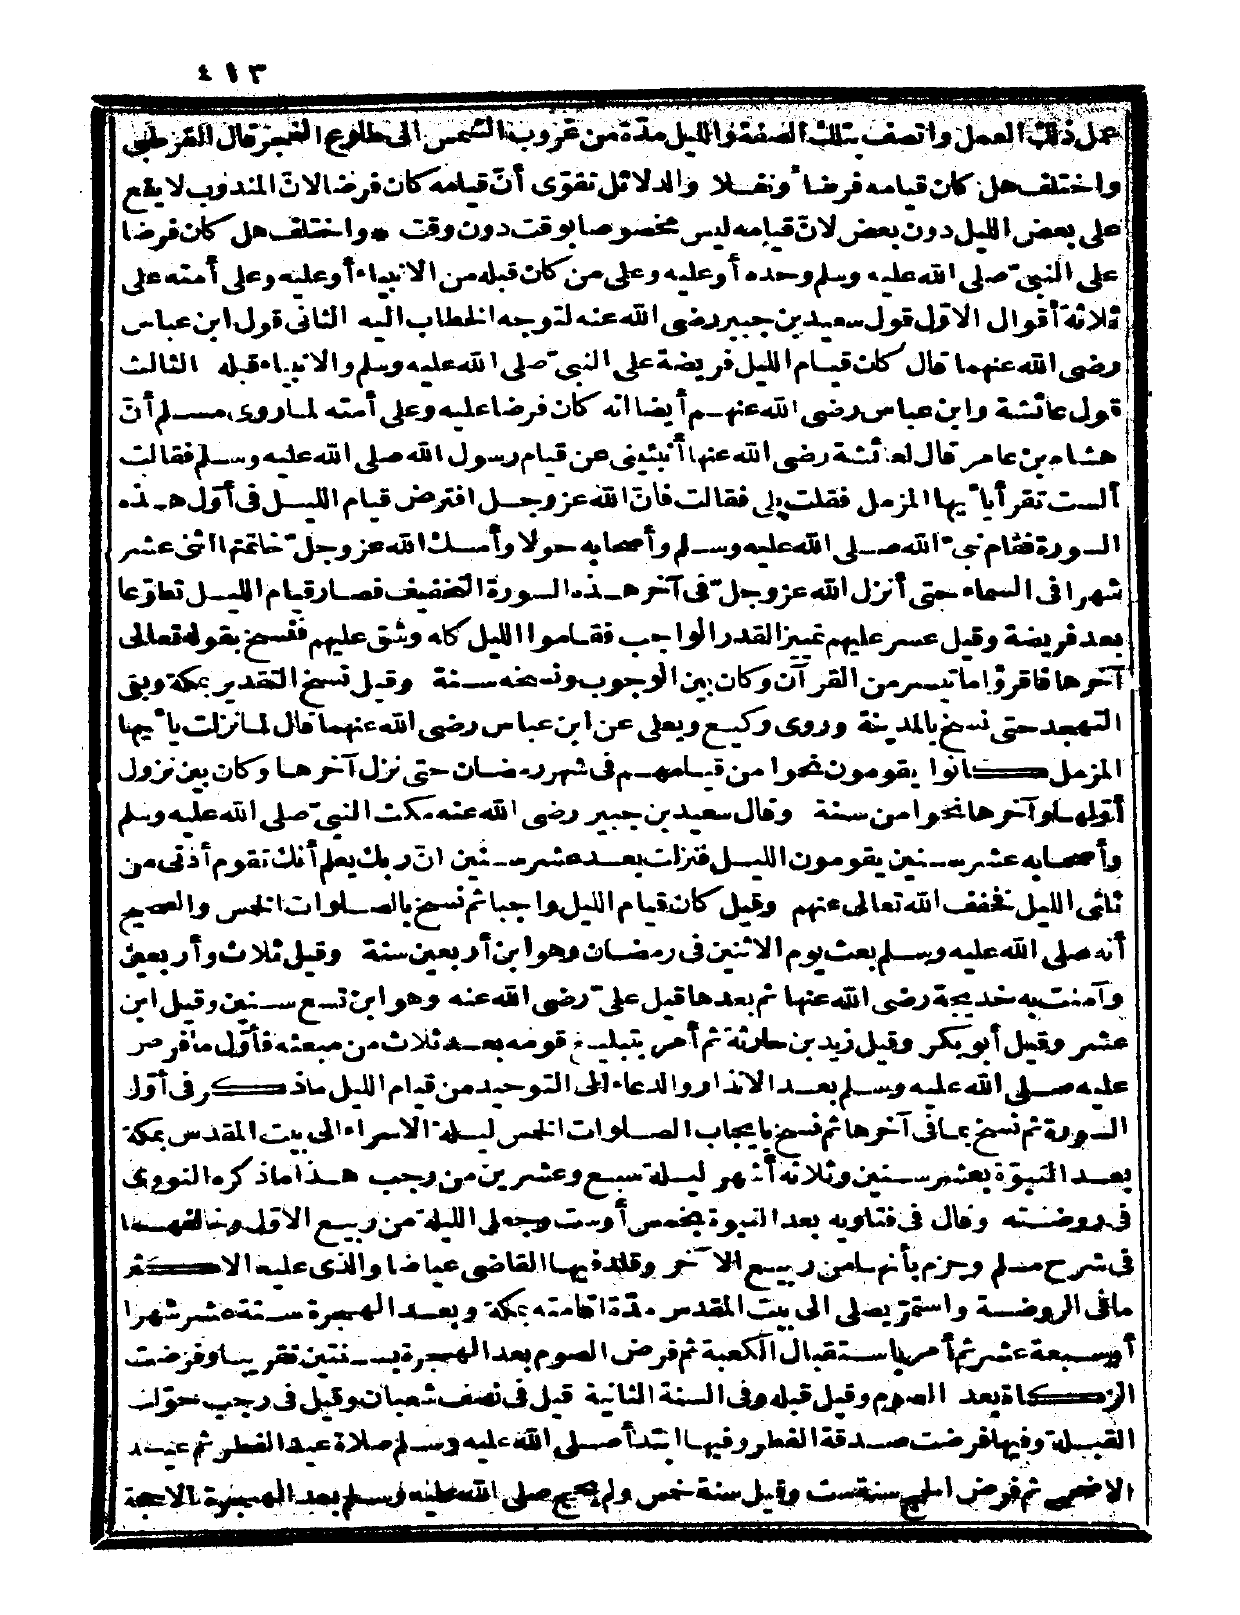 ٤١٣
عمل ذلك العمل واتصف بتلك الصفة والليل مدة من غروب الشمس الى طلوع الفجر قال القرطبى
واختلف هل كان قيامه فرضا أو نفلا والدلائل تقوّى أنّ قيامه كان فرضا لانّ المندوب لا يقع
على بعض الليل دون بعض لانّ قيامه ليس مخصوصا بوقت دون وقت * واختلف هل كان فرضا
على النبىّ صلى الله عليه وسلم وحده أو عليه وعلى من كان قبله من الانبياء أو عليه وعلى أمته على
ثلاثة أقوال الاوّل قول سعيد بن جبير رضى الله عنه لتوجه الخطاب اليه الثانى قول ابن عباس
رضى الله عنهما قال كان قيام الليل فريضة على النبىّ صلى الله عليه وسلم والانبياء قبله الثالث
قول عائشة وابن عباس رضى الله عنهم أيضا انه كان فرضا عليه وعلى أمته لما روى مسلم أنّ
هشام بن عامر قال لعائشة رضى الله عنها أنبئينى عن قيام رسول الله صلى الله عليه وسلم فقالت
ألست تقرأ يا أيها المزمل فقلت بلى فقالت فانّ الله عز وجل افترض قيام الليل فى أوّل هذه
السورة فقام نبىّ الله صلى الله عليه وسلم وأصحابه حولا وأمسك الله عز وجلّ خاتمتها اثنى عشر
شهرا فى السماء حتى أنزل الله عز وجلّ فى آخر هذه السورة التخفيف فصار قيام الليل تطوّعا
بعد فريضة وقيل عسر عليهم تمييز القدر الواجب فقاموا الليل كله وشق عليهم فنسخ بقوله تعالى
آخرها فاقرؤا ما تيسر من القرآن وكان بين الوجوب ونسخه سنة وقيل نسخ التقدير بمكة وبقى
التهجد حتى نسخ بالمدينة وروى وكيع ويعلى عن ابن عباس رضى الله عنهما قال لما نزلت يا أيها
المزمل كانوا يقومون نحوا من قيامهم فى شهر رمضان حتى نزل آخرها وكان بين نزول
أوّلها وآخرها نحوا من سنة وقال سعيد بن جبير رضى الله عنه مكث النبىّ صلى الله عليه وسلم
وأصحابه عشر سنين يقومون الليل فنزلت بعد عشر سنين انّ ربك يعلم أنك تقوم أدنى من
ثلثى الليل فخفف الله تعالى عنهم وقيل كان قيام الليل واجبا ثم نسخ بالصلوات الخمس والصحيح
أنه صلى الله عليه وسلم بعث يوم الاثنين فى رمضان وهو ابن أربعين سنة وقيل ثلاث وأربعين
وآمنت به خديجة رضى الله عنها ثم بعدها قيل علىّ رضى الله عنه وهو ابن تسع سنين وقيل ابن
عشر وقيل أبو بكر وقيل زيد بن حارثة ثم أمر بتبليغ قومه بعد ثلاث من مبعثه فأوّل ما فرض
عليه صلى الله عليه وسلم بعد الانذار والدعاء الى التوحيد من قيام الليل ما ذكر فى أوّل
السورة ثم نسخ بما فى آخرها ثم نسخ بايجاب الصلوات الخمس ليلة الاسراء الى بيت المقدس بمكة
بعد النبوّة بعشر سنين وثلاثة أشهر ليلة سبع وعشرين من رجب هذا ما ذكره النووى
فى روضته وقال فى فتاويه بعد النبوة بخمس أو ست وجعل الليلة من ربيع الاول وخالفهما
فى شرح مسلم وجزم بأنها من ربيع الآخر وقلد فيها القاضى عياضا والذى عليه الاكثر
ما فى الروضة واستمرّ يصلى الى بيت المقدس مدّة اقامته بمكة وبعد الهجرة ستة عشر شهرا
أو سبعة عشر ثم أمر باستقبال الكعبة ثم فرض الصوم بعد الهجرة بسنتين تقريبا وفرضت
الزكاة بعد الصوم وقيل قبله وفى السنة الثانية قيل فى نصف شعبان وقيل فى رجب حوّلت
القبلة وفيها فرضت صدقة الفطر وفيها ابتدأ صلى الله عليه وسلم صلاة عيد الفطر ثم عيد
الاضحى ثم فرض الحج سنة ست وقيل سنة خمس ولم يحج صلى الله عليه وسلم بعد الهجرة الا حجة